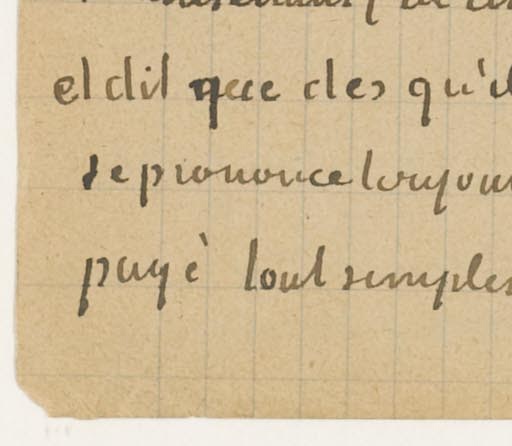 et dit que des qu'il
se prononce toujour
payè tout simple